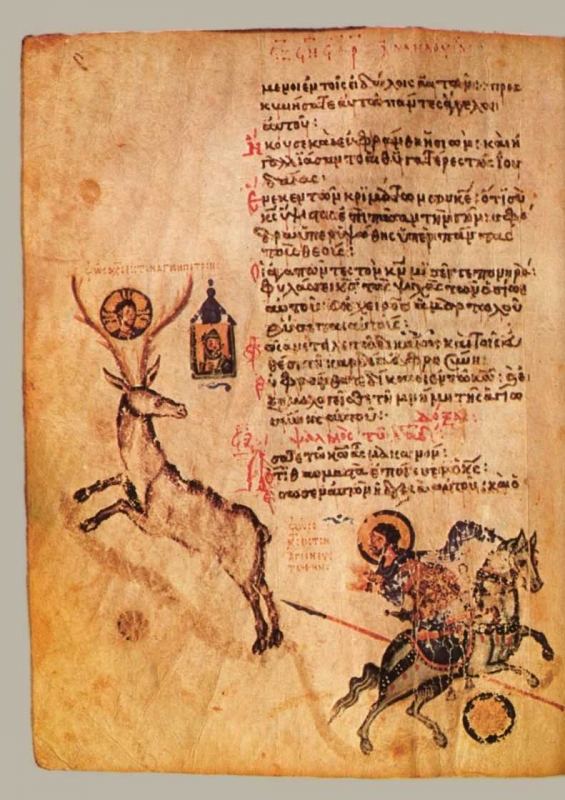 μενοι ἐν τοῖς εἰδώλοις αὐτῶν: προσ
κυνήσατε αὐτῷ πάντες ἄγγελοι
αὐτοῦ:
Ἤκουσε καὶ εὐφράνθη ἡ σιών: καὶ ἠ
γαλλιάσαντο αἱ θυγατέρες τῆς Ἰου
δαίας:
Ἕνεκεν τῶν κριμάτων σου κε: ὅτι σὺ
κς ὕψιστος ἐπὶ πᾶσαν τὴν γῆν: σφό
δρα ὑπερυψώθης ὑπὲρ πάντας
τοὺς θεούς:
Οἱ ἀγαπῶντες τὸν κν μισεῖτε πονηρά:
φυλάσσει κς τὰς ψυχὰς τῶν ὁσίων
αὐτοῦ: ἐκ χειρὸς ἁμαρτωλοῦ
ῥύσεται αὐτούς:
Φῶς ἀνέτειλε τῷ δικαίῳ καὶ τοῖς εὐ
θέσι τῇ καρδίᾳ εὐφροσύνη:
Εὐφράνθητε δίκαιοι ἐν τῷ κω: καὶ ἐ
ξομολογεῖσθε τῇ μνήμῃ τῆς ἁγιω
σύνης αὐτοῦ: ΔΟΞΑ:
ψαλμὸς τῷ δαδ
ᾌσατε τῷ κω ᾆσμα καινόν:
ὅτι θαυμαστὰ ἐποίησεν ὁ κς:
Ἔσωσεν αὐτὸν ἡ δεξιὰ αὐτοῦ: καὶ ὁ